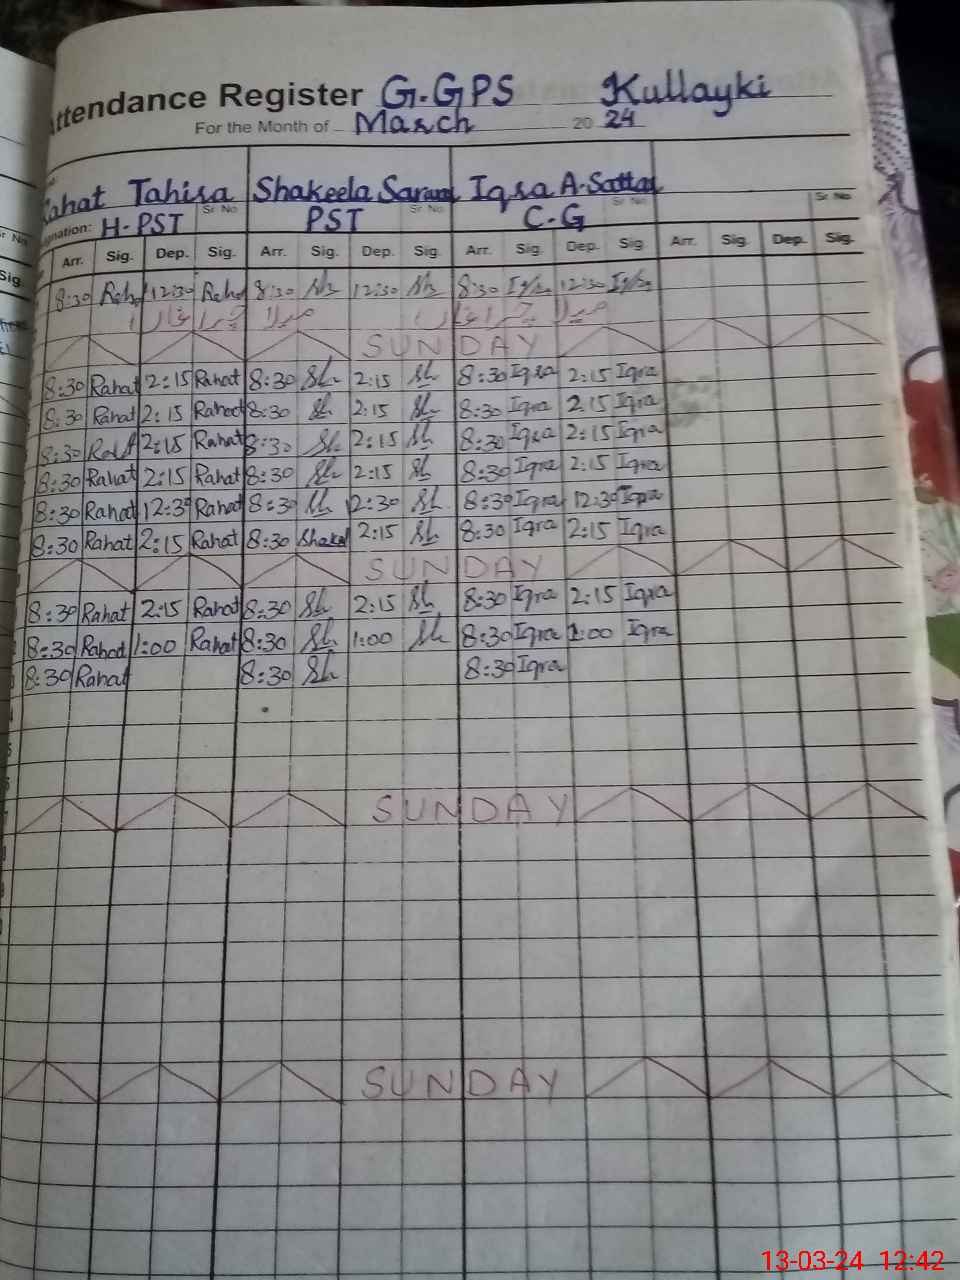 Attendance Register G.GPS Kullayki
For the Month of March 2024
Rahat Tahira Shakeela Sarwar Iqra A.Sattar
Sr No. Sr No. Sr No. Sr No.
Designation: H-PST PST C-G
Arr. Sig. Dep. Sig. Arr. Sig. Dep. Sig. Arr. Sig. Dep. Sig. Arr. Sig. Dep. Sig.
8:30 Rahat 12:30 Rahat 8:30 Sh 12:30 Sh 8:30 Iqra 12:30 Iqra
میلا چراغاں میلا چراغاں
SUNDAY
8:30 Rahat 2:15 Rahat 8:30 Sh 2:15 Sh 8:30 Iqra 2:15 Iqra
8:30 Rahat 2:15 Rahat 8:30 Sh 2:15 Sh 8:30 Iqra 2:15 Iqra
8:30 Rahat 2:15 Rahat 8:30 Sh 2:15 Sh 8:30 Iqra 2:15 Iqra
8:30 Rahat 2:15 Rahat 8:30 Sh 2:15 Sh 8:30 Iqra 2:15 Iqra
8:30 Rahat 12:30 Rahat 8:30 Sh 12:30 Sh 8:30 Iqra 12:30 Iqra
8:30 Rahat 2:15 Rahat 8:30 Shakeel 2:15 Sh 8:30 Iqra 2:15 Iqra
SUNDAY
8:30 Rahat 2:15 Rahat 8:30 Sh 2:15 Sh 8:30 Iqra 2:15 Iqra
8:30 Rahat 1:00 Rahat 8:30 Sh 1:00 Sh 8:30 Iqra 1:00 Iqra
8:30 Rahat 8:30 Sh 8:30 Iqra
SUNDAY
SUNDAY
13-03-24 12:42